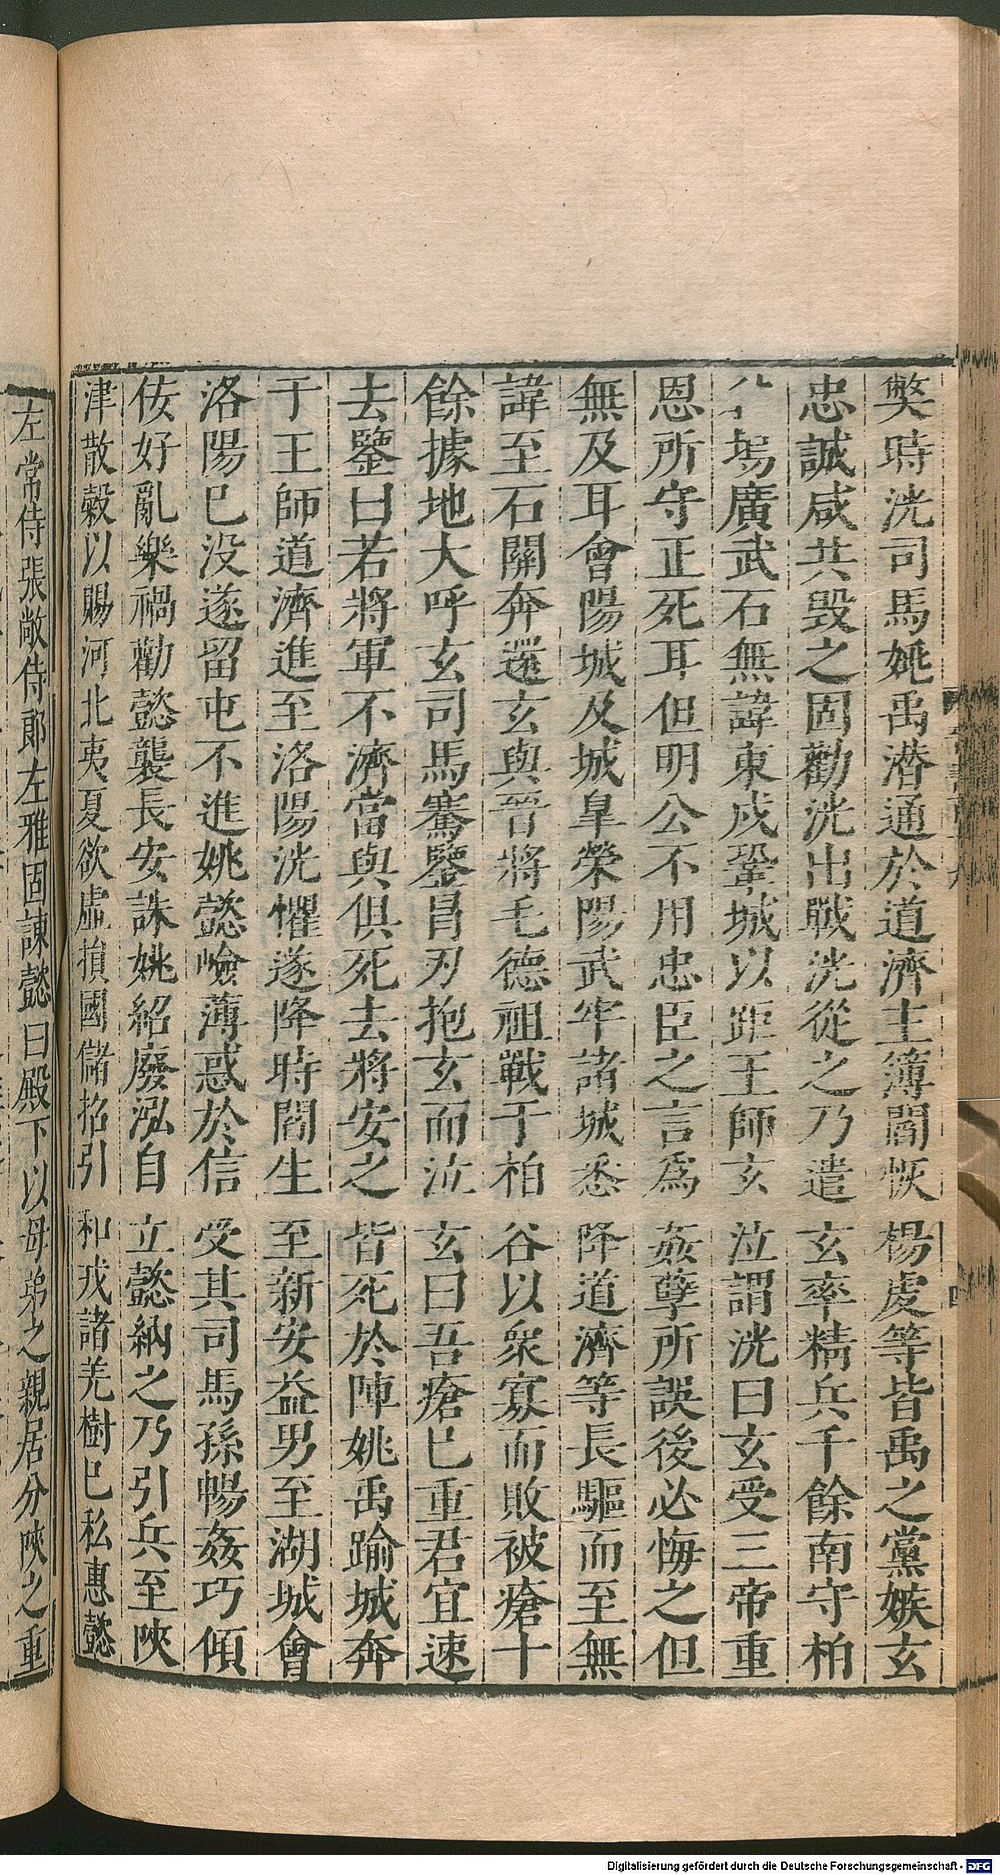 獘時洸司馬姚禹潛通於道濟主簿閻恢楊虔等皆禹之黨嫉玄
忠誠咸共毀之固勸洸出戰洸從之乃遣玄率精兵千餘南守柏
塢廣武石無諱東戍鞏城以距王師玄泣謂洸曰玄受三帝重
恩所守正死耳但明公不用忠臣之言爲姦孽所誤後必悔之但
無及耳會陽城及城皐滎陽武牢諸城悉降道濟等長驅而至無
諱至石關奔還玄與晉將毛德祖戰于柏谷以衆寡而敗被瘡十
餘據地大呼玄司馬騫鑒冐刃抱玄而泣玄曰吾瘡已重君宜速
去鑒曰若將軍不濟當與俱死去將安之皆死於陣姚禹踰城奔
于王師道濟進至洛陽洸懼遂降時閻生至新安益男至湖城會
洛陽已没遂留屯不進姚懿嶮薄惑於信受其司馬孫暢姦巧傾
佞好亂樂禍勸懿襲長安誅姚紹廢泓自立懿納之乃引兵至陝
津散穀以賜河北夷夏欲虛損國儲招引和戎諸羌樹已私惠懿
左常侍張敞侍郎左雅固諫懿曰殿下以母弟之親居分陝之重
Digitalisierung gefördert durch die Deutsche Forschungsgemeinschaft - DFG